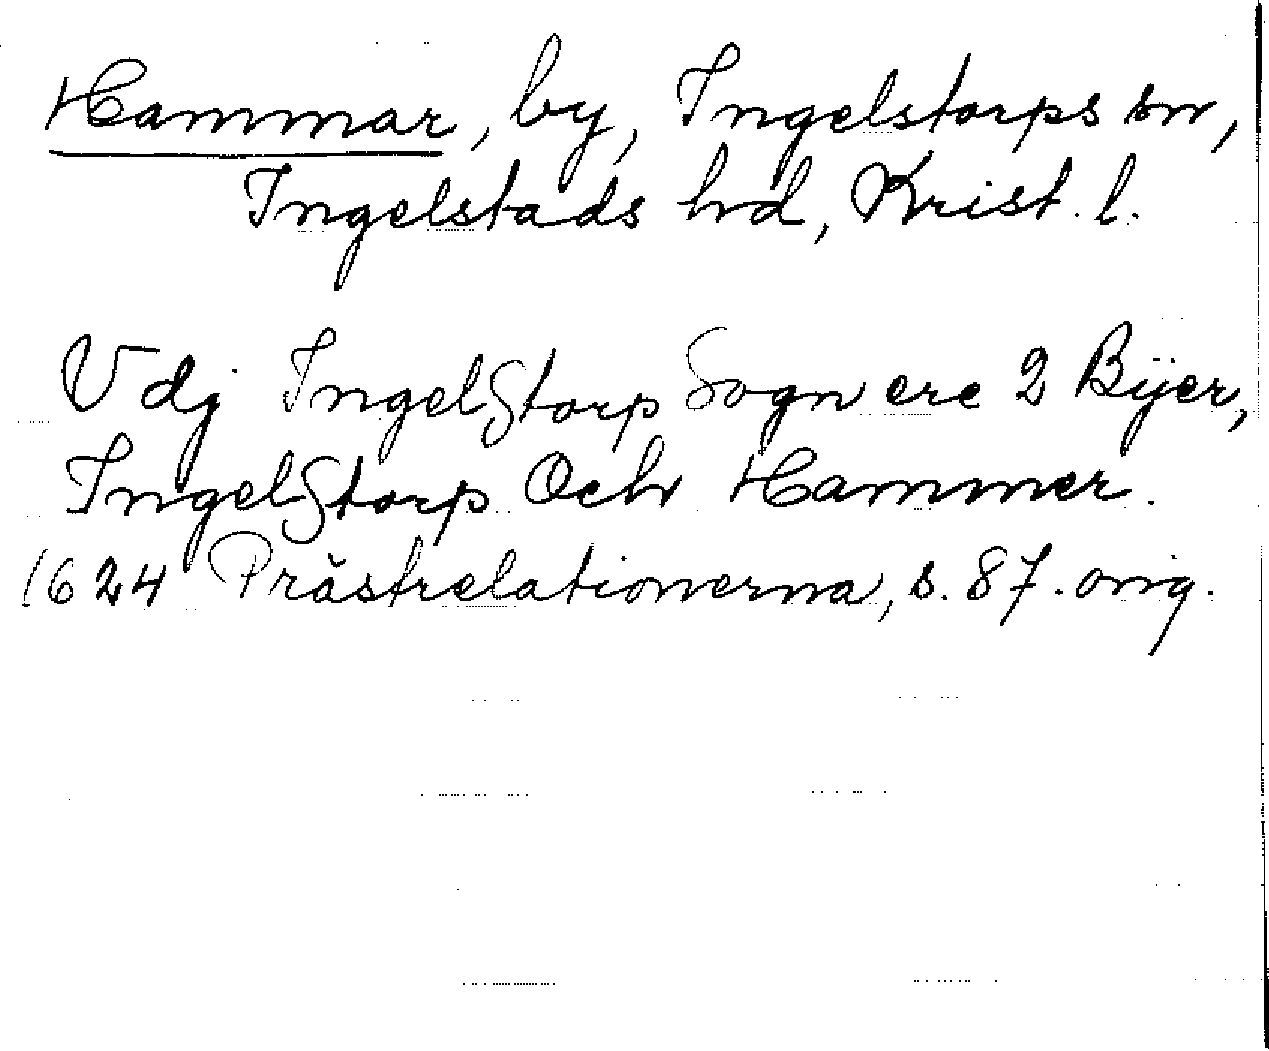 Hammar, by, Ingelstorps sn,
Ingelstads hd, Krist. l.
Udj Ingelßtorp Sogn ere 2 Bÿer,
Ingelßtorp Och Hammer.
1624 Prästrelationerna, s. 87. orig.